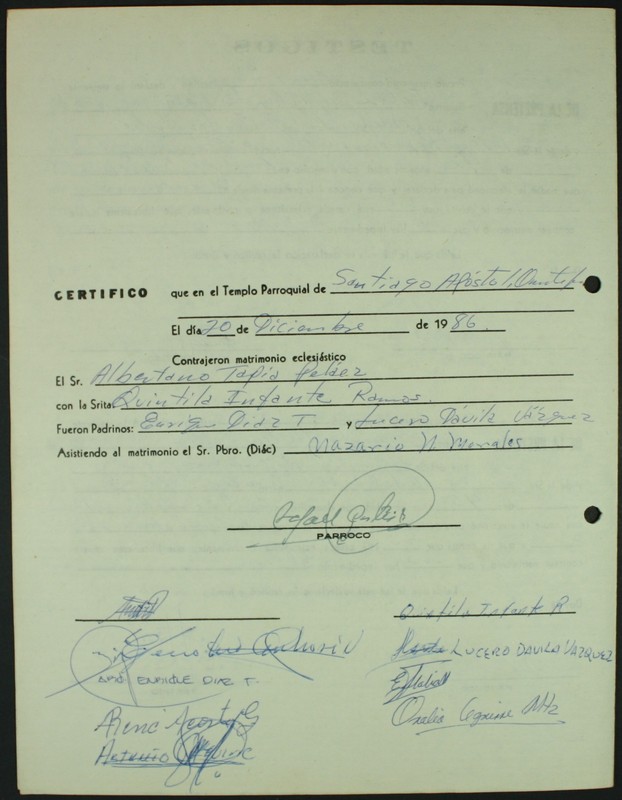 CERTIFICO que en el Templo Parroquial de Santiago Apóstol,
El día 20 de Diciembre de 1986
Contrajeron matrimonio eclesiástico
El Sr. Albertano Tapia Pelaez
con la Srita. Quintila Infante Ramos.
Fueron Padrinos: Enriqe Diaz T. y Lucero Dávila Vázquez
Asistiendo al matrimonio el Sr. Pbro. (Diác) Nazario N Morales
Rafael
PARROCO
Quintila Infante R
LUCERO DAVILA VAZQUEZ
ENRIQUE DIAZ T.
René Acosta G
Antonio
Onalia Aguirre Mtz